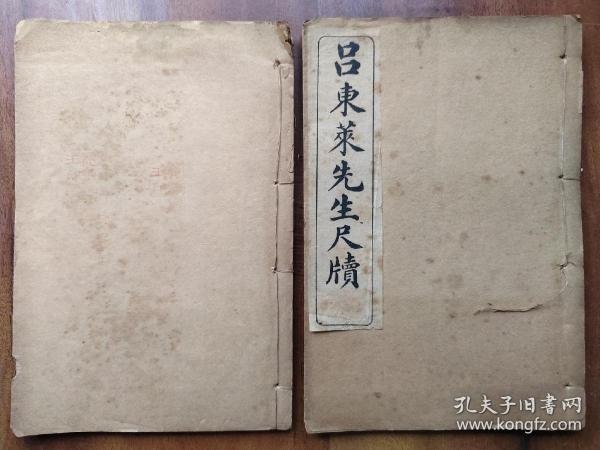 呂東萊先生尺牘
孔夫子旧书网
www.kongfz.com